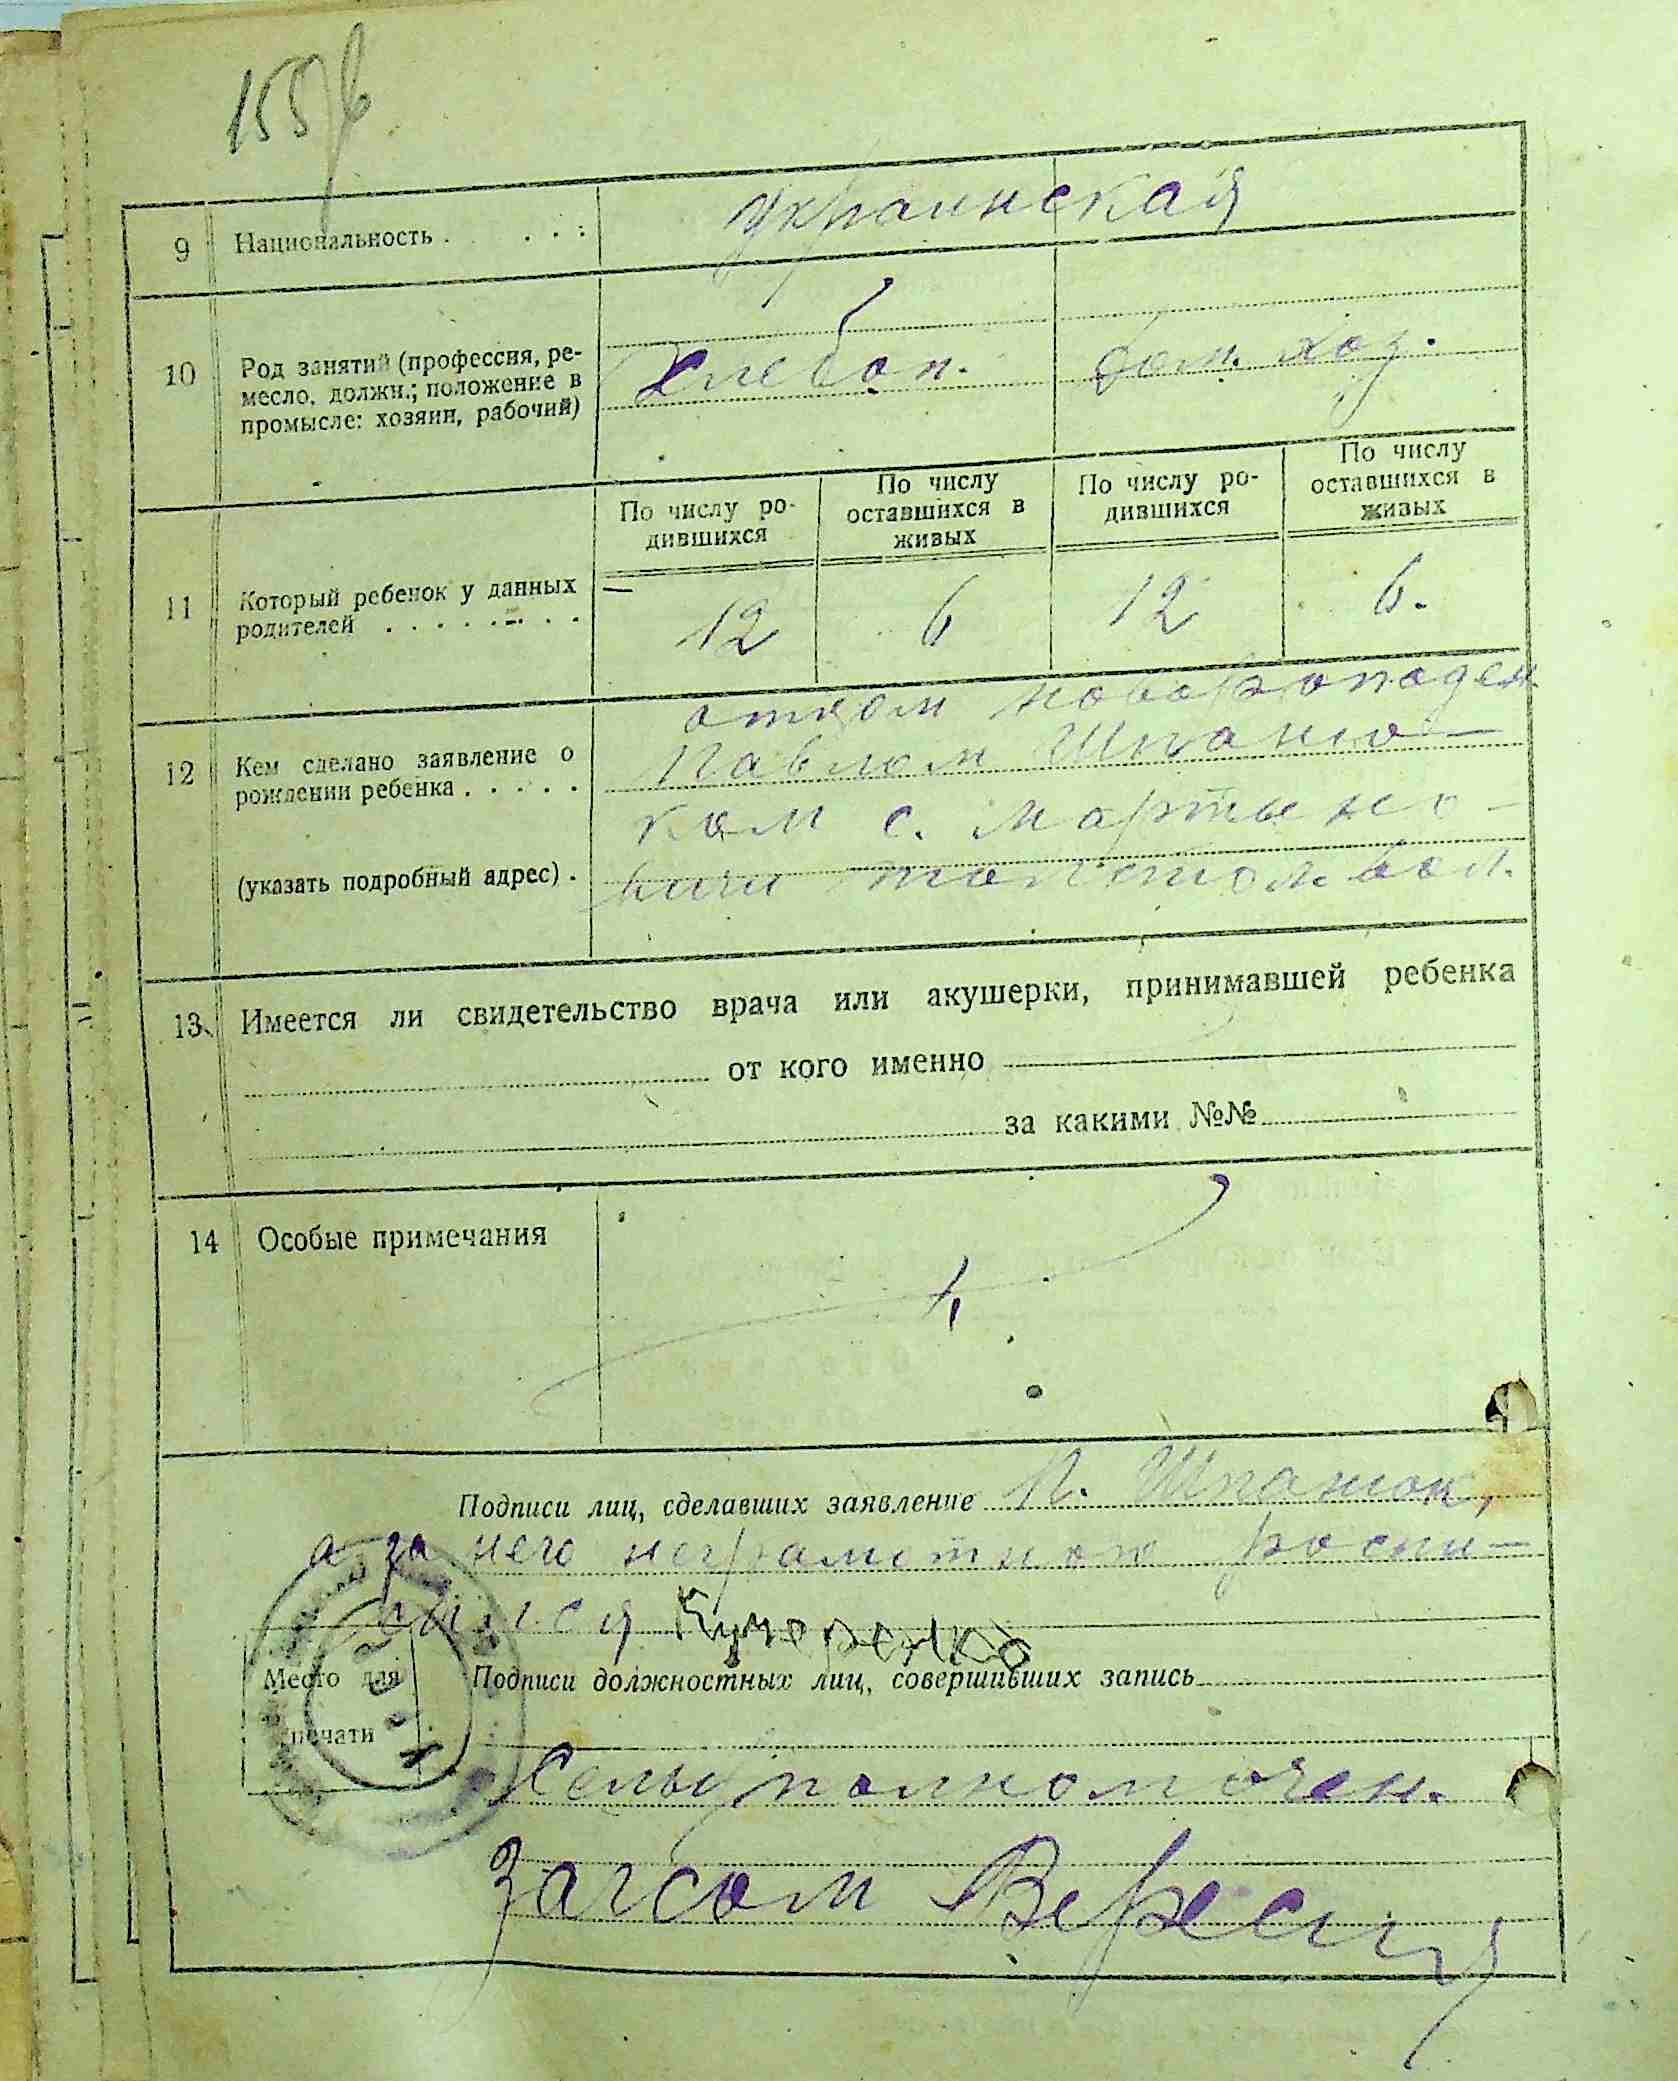 155
9 Национальность . . . . : украинская
10 Род занятий (профессия, ре-
месло, должн.; положение в
промысле: хозяин, рабочий)
Хлебоп. дом. хоз.
По числу ро-
дившихся
По числу
оставшихся в
живых
По числу ро-
дившихся
По числу
оставшихся в
живых
11 Который ребенок у данных
родителей . . . . . . . .
12 6 12 6.
12 Кем сделано заявление о
рождении ребенка . . . . .
(указать подробный адрес) .
отцом
Павлом Шпаню-
ком с. Мартыно-
вичи вол.
13 Имеется ли свидетельство врача или акушерки, принимавшей ребенка
от кого именно
за какими №№
14 Особые примечания
Подписи лиц, сделавших заявление П. Шпанюк,
а за него неграмотного роспи-
сылся Кучеренко
Место для
печати
Подписи должностных лиц, совершивших запись
Сельуполномочен.
Загсом